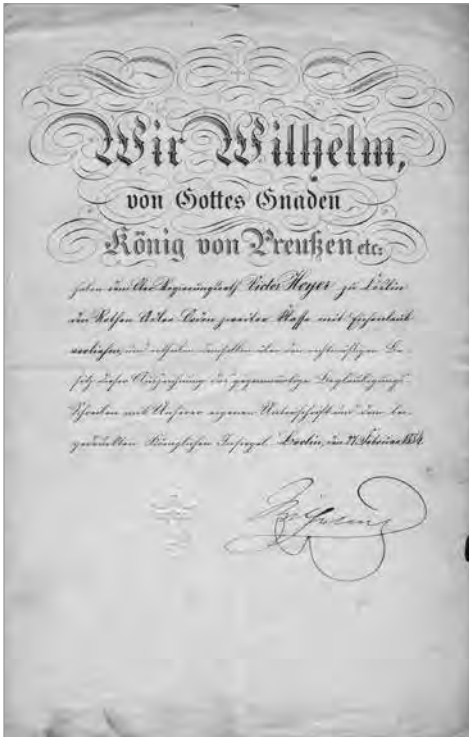 Wir Wilhelm,
von Gottes Gnaden
König von Preußen etc:
haben dem Ober Regierungsrath Victor Heyer zu
den Rothen Adler Orden zweiter Klasse mit Eichenlaub
verliehen, und ertheilen demselben über den rechtmäßigen Be-
sitz dieser Auszeichnung das gegenwärtige Beglaubigungs-
Schreiben mit Unserer eigenen Unterschrift und dem bei-
gedruckten Königlichen Insiegel. Berlin, den 27. Februar 1884.
Wilhelm